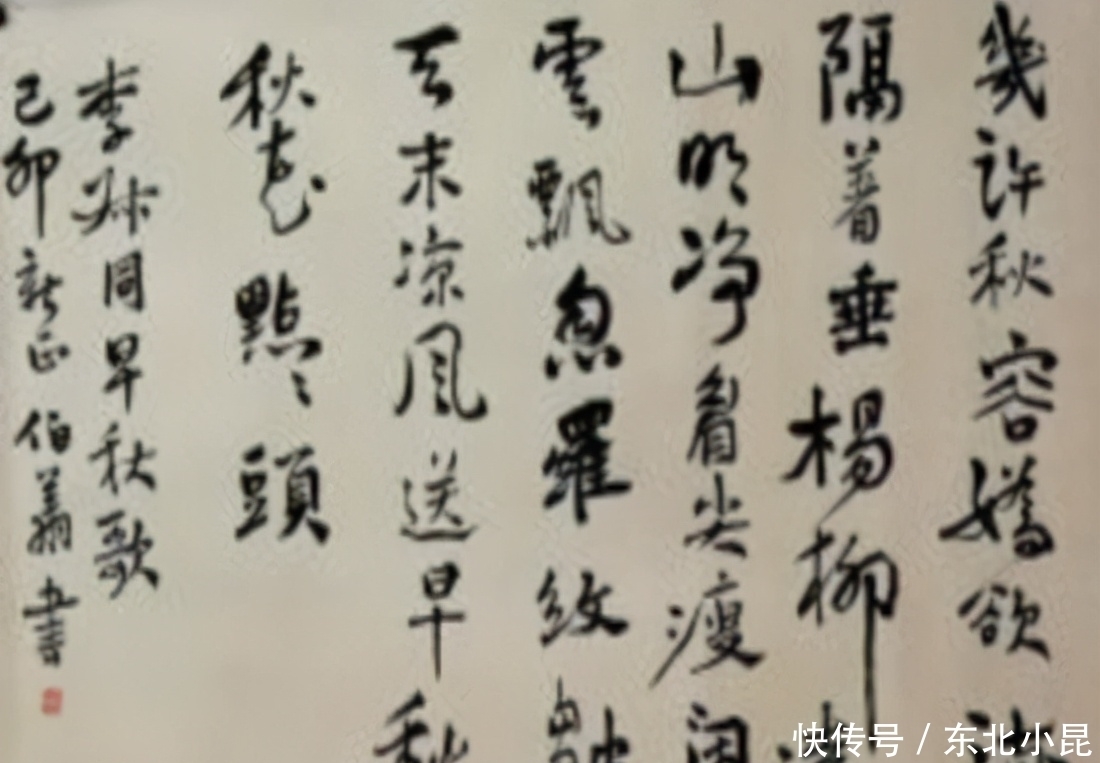 幾許秋容嬌欲
隔著垂楊柳
山明净眉尖瘦
雲飄忽羅紋皺
天末凉風送早秋
秋花點々頭
李叔同早秋歌
己卯新正伯書
快传号 / 东北小昆